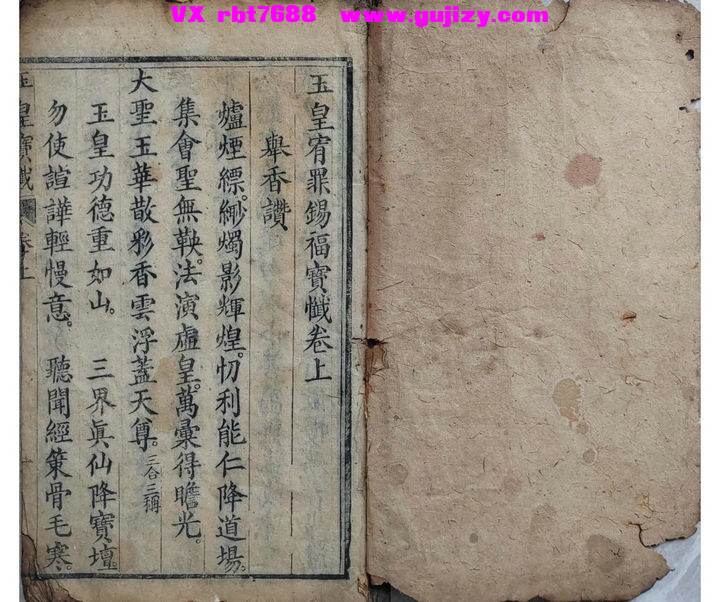 VX rbt7688 www.gujizy.com
玉皇宥罪錫福寶懺卷上
舉香讚
爐煙縹緲。燭影輝煌。忉利能仁降道場。
集會聖無鞅。法演虛皇。萬彙得瞻光。
大聖玉華散彩香雲浮蓋天尊。三合三稱
玉皇功德重如山。 三界眞仙降寶壇。
勿使諠譁輕慢意。 聽聞經策骨毛寒。
玉皇寶懺 卷上